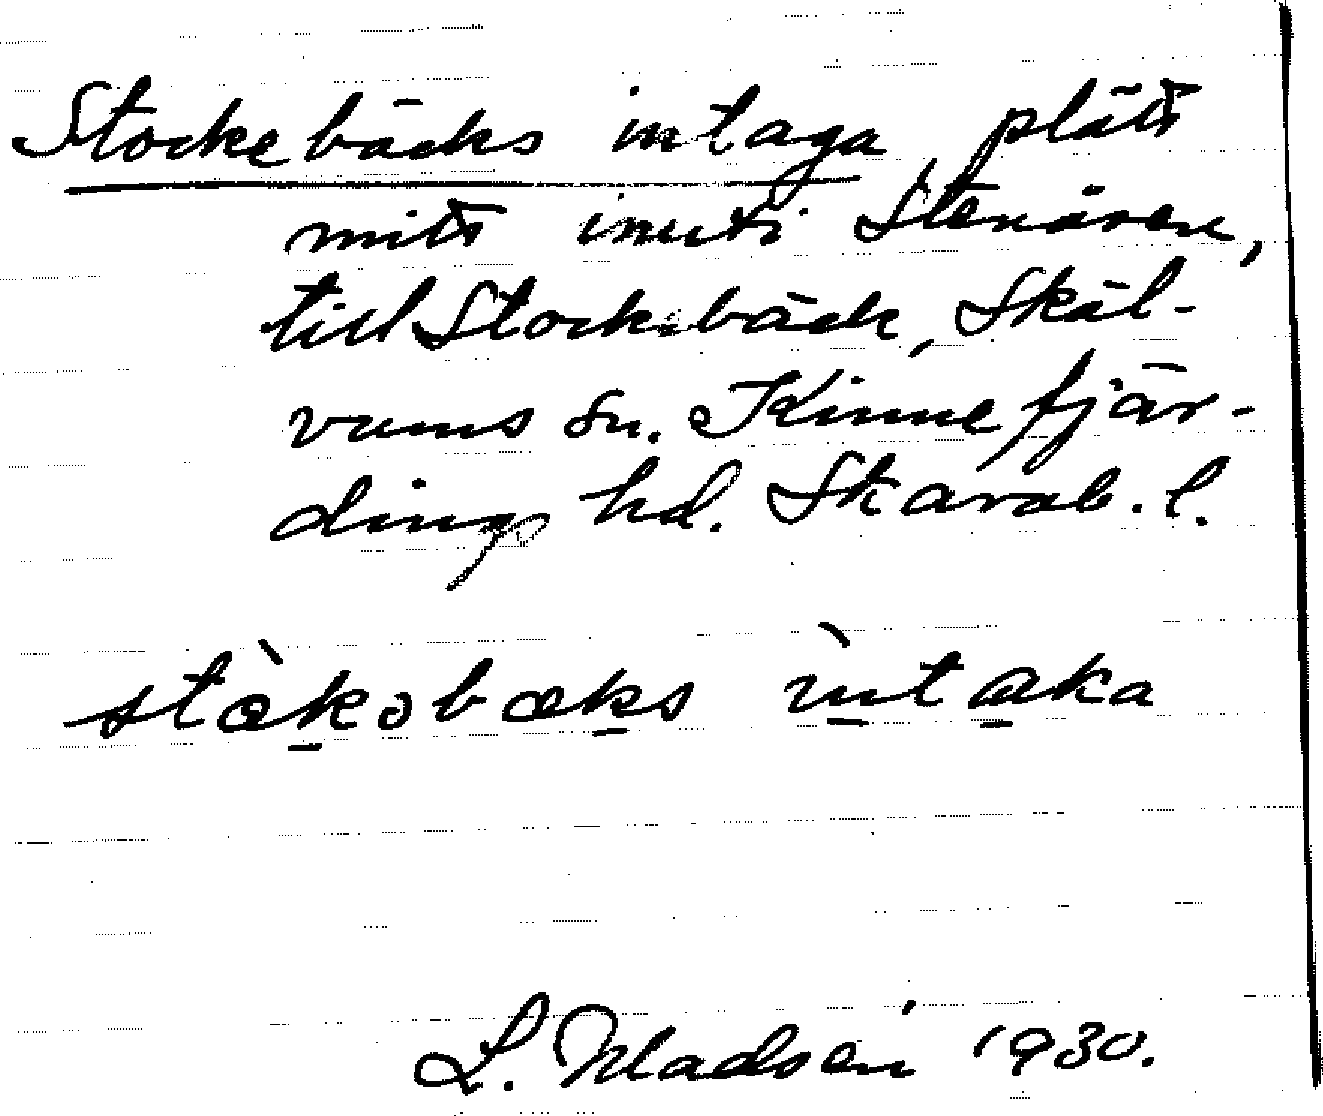 Stockebäcks intaga, plätt
mitt inuti Stenåsen,
till Stockebäck, Skäl-
vums sn. Kinnefjär-
ding hd. Skarab. l.
stòkəbæks ìntaka
L. Madsén 1930.